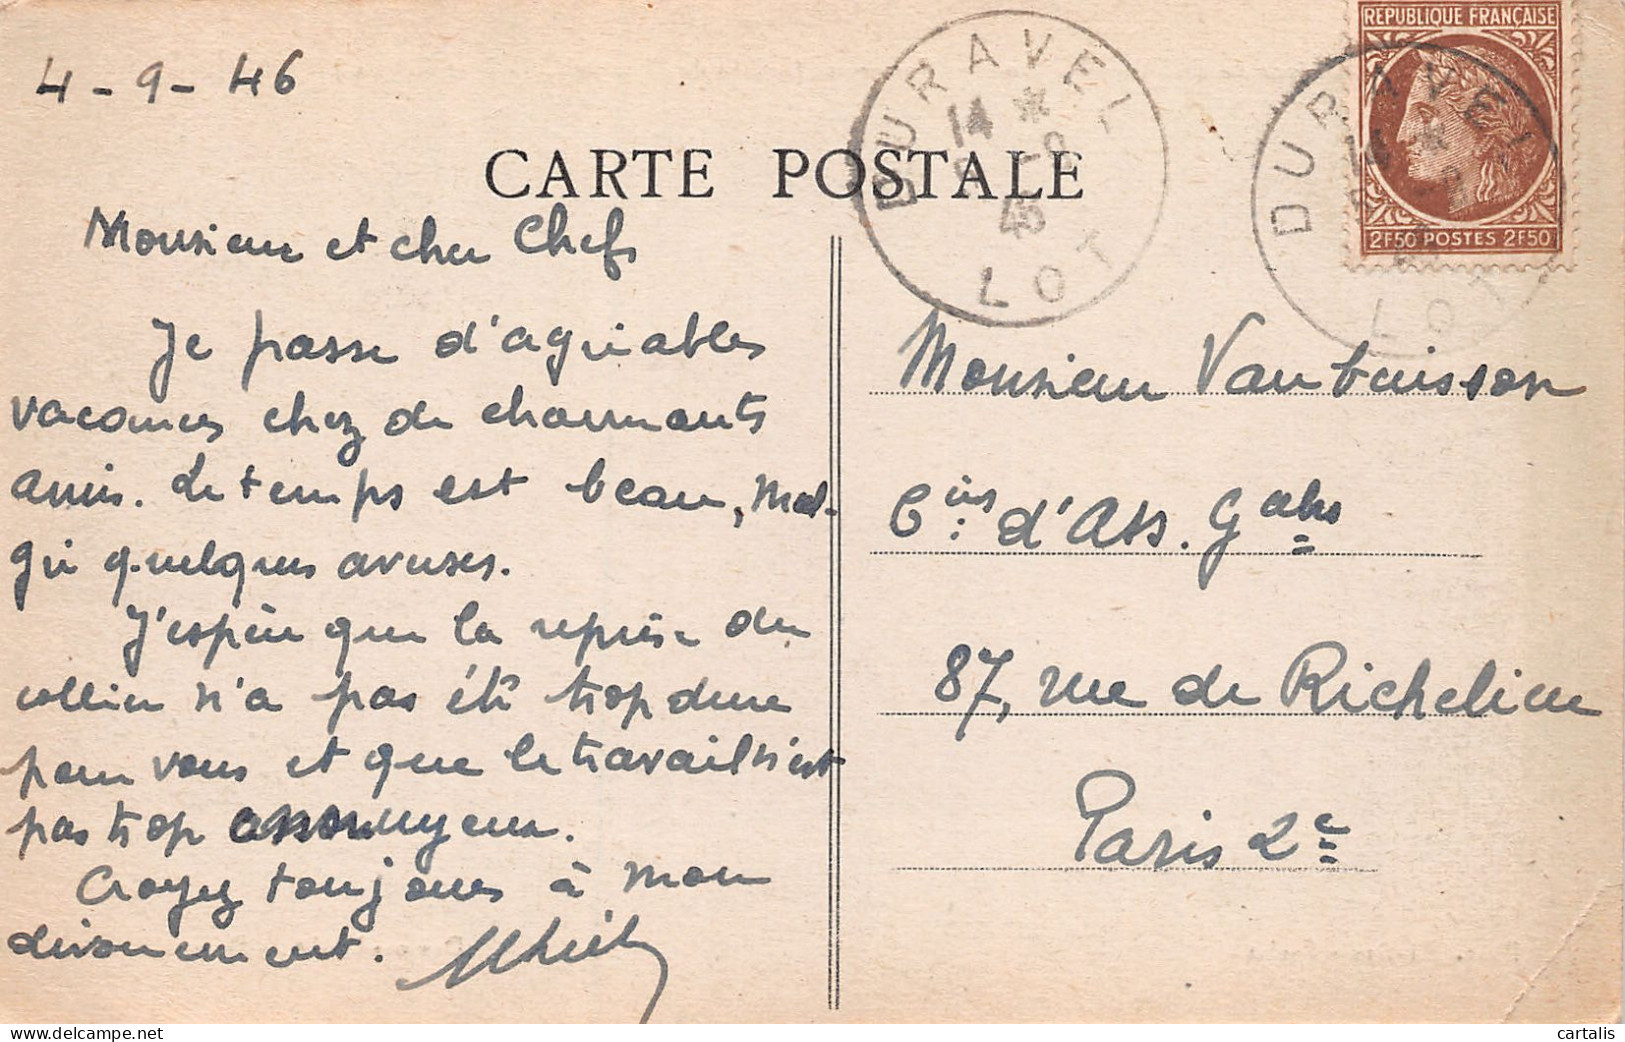 4-9-46
CARTE POSTALE
DURAVEL
14 *
LOT
REPUBLIQUE FRANÇAISE
2F50 POSTES 2F50
DURAVEL
14 *
LOT
Monsieur et cher Chef,
Je passe d'agréables
vacances chez de charmants
amis. Le temps est beau, mal-
gré quelques averses.
J'espère que la reprise du
collier n'a pas été trop dure
pour vous et que le travail n'est
pas trop ennuyeux.
Croyez toujours à mon
dévouement.
Monsieur Vaubuisson
Cie: d'Ass. Gales
87, rue de Richelieu
Paris 2e
cartalis